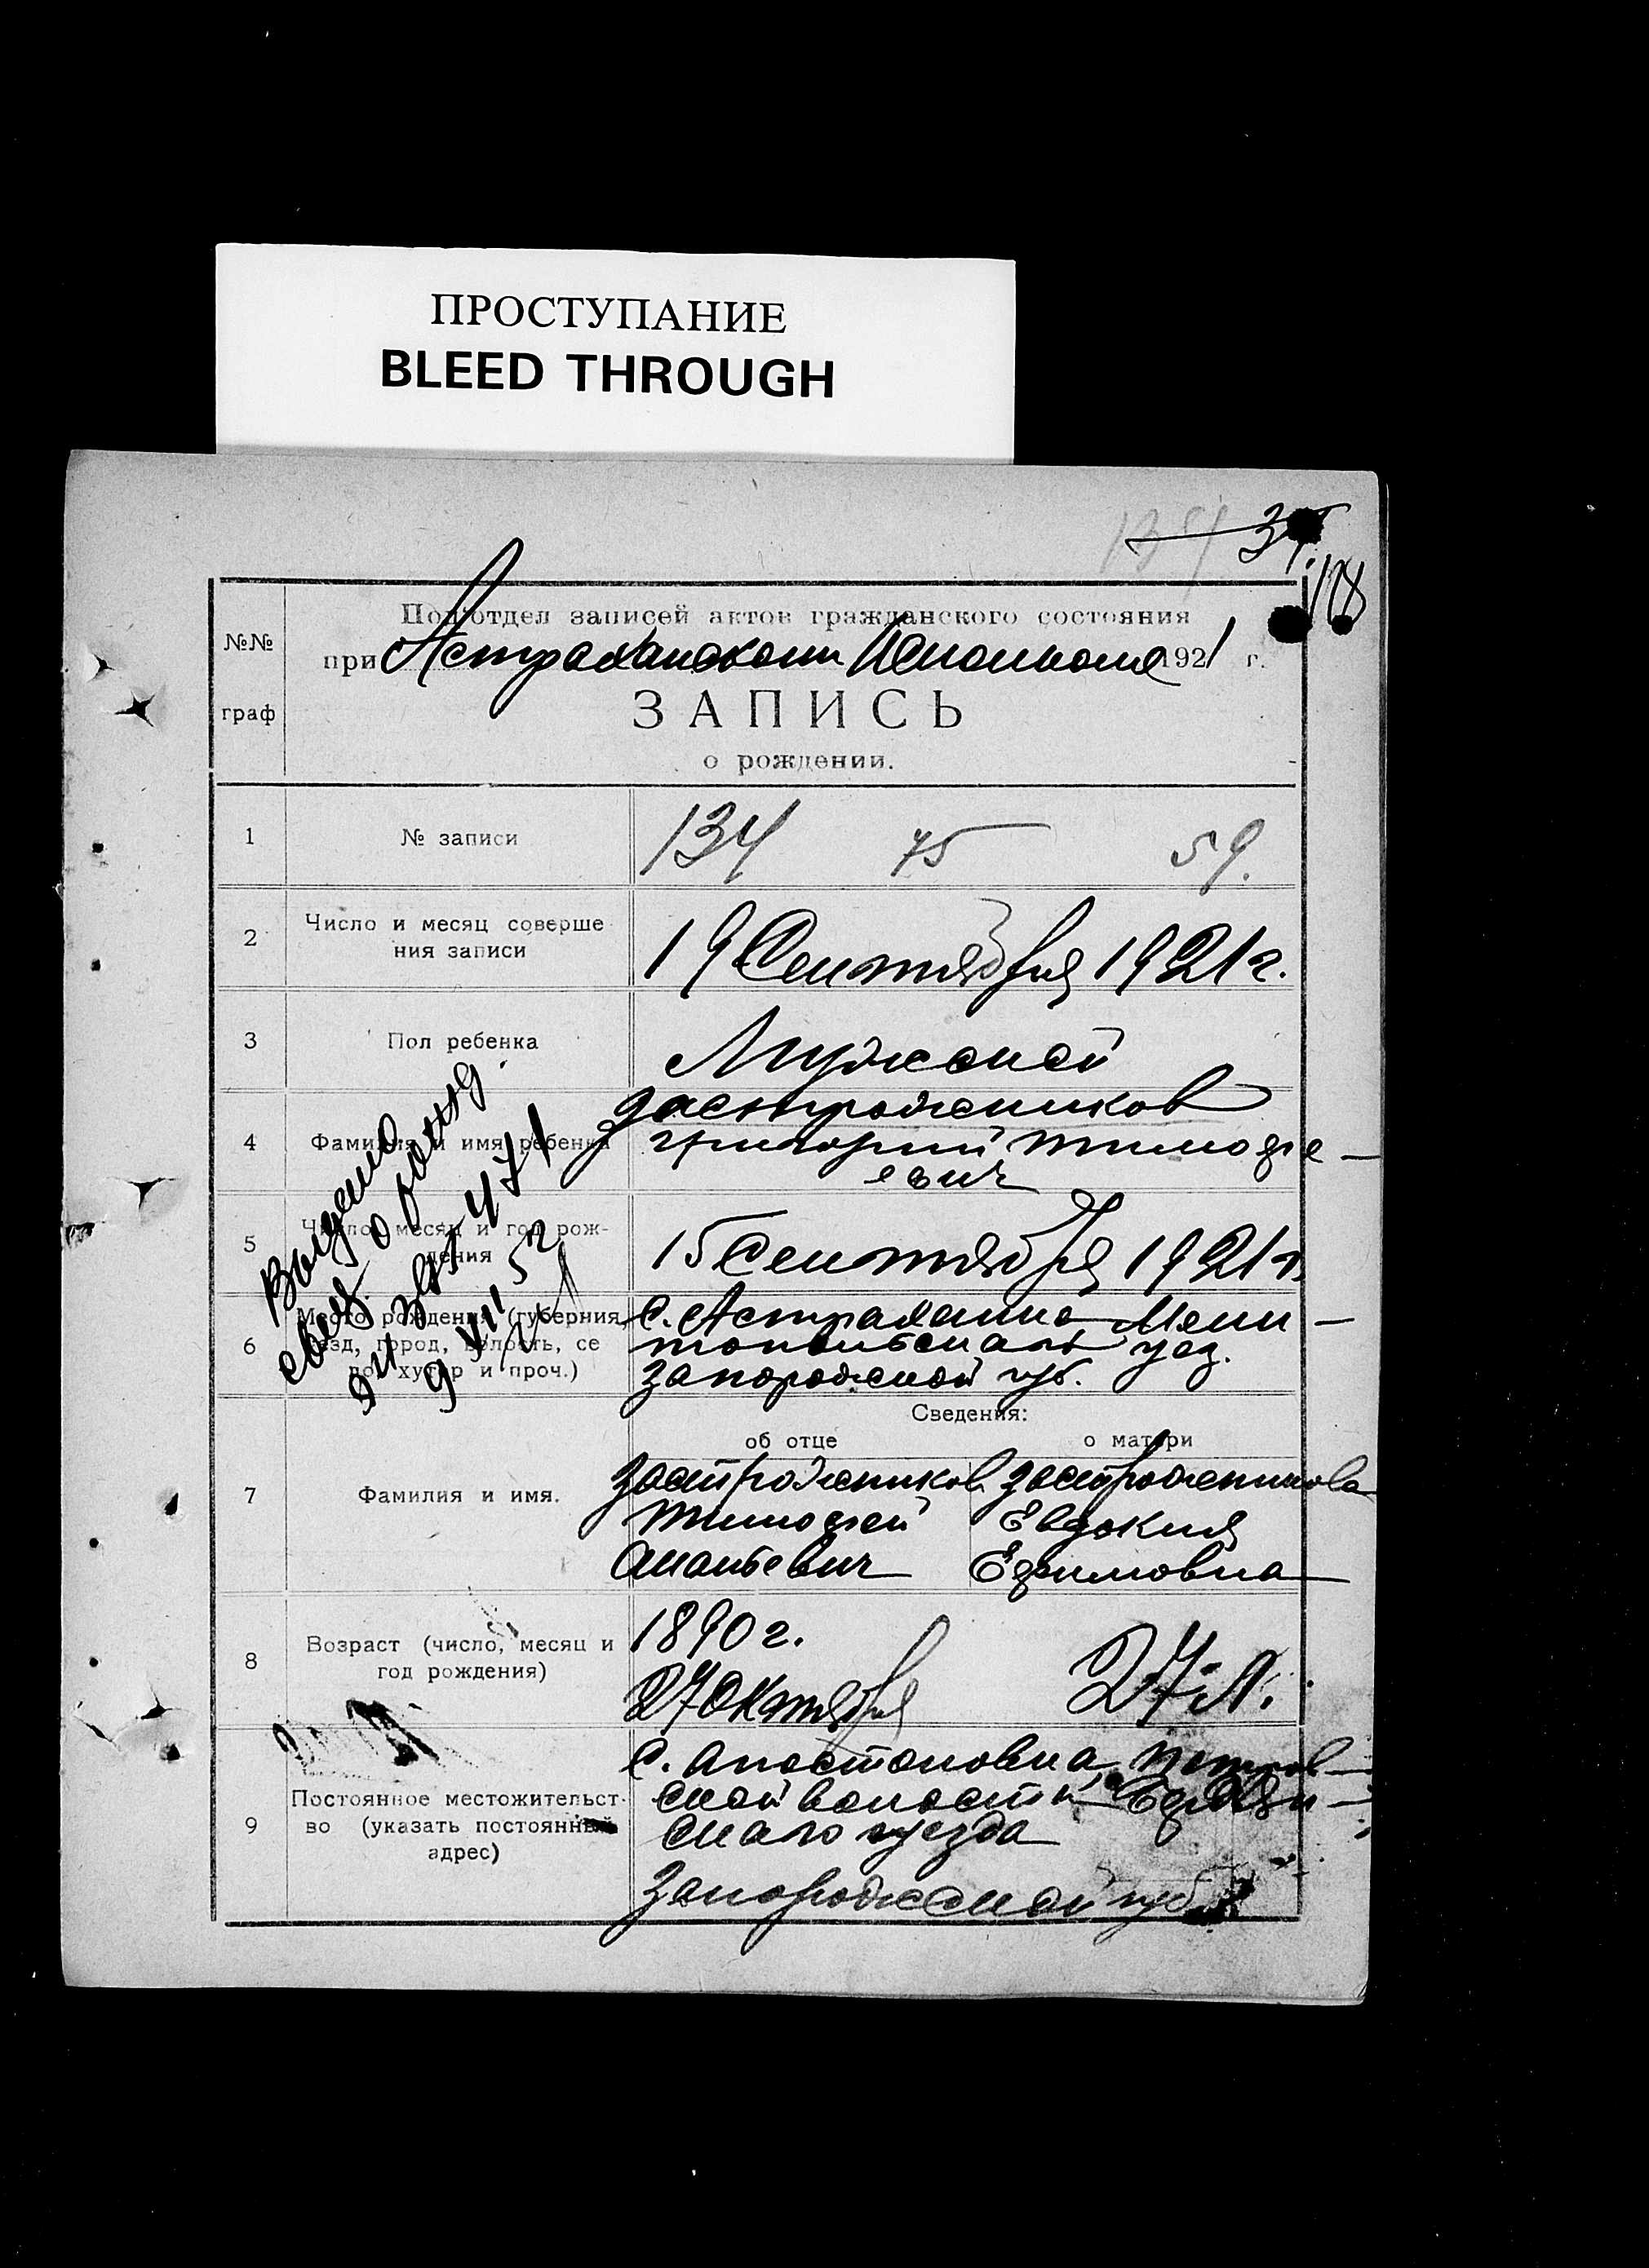 ПРОСТУПАНИЕ
BLEED THROUGH
134 34.
Подотдел записей актов гражданского состояния
№№
при Астраханском Исполкоме 1921 г.
граф
ЗАПИСЬ
о рождении.
1 № записи 134 75 59.
2 Число и месяц соверше
ния записи
19 Сентября 1921 г.
3 Пол ребенка Мужской
4 Фамилия и имя ребенка
Застрожников
Григорий Тимофе-
евич
5 Число, месяц и год рож-
дения
15 Сентября 1921 г.
6 Место рождения (губерния,
уезд, город, волость, се
ло, хутор и проч.)
с. Астраханка Мели-
топольскаго уез.
Запорожской губ.
Выдано
свид. о рожд.
471
9 VIII 52
Сведения:
об отце о матери
7 Фамилия и имя.
Застрожников Застрожникова
Тимофей Евдокия
Ананьевич Ефимовна
8 Возраст (число, месяц и
год рождения)
1890 г.
27 Октября 27 л.
9 Постоянное местожительст-
во (указать постоянный
адрес)
с. Апостоловка, Петров-
ской волости
скаго уезда
Запорожской губ